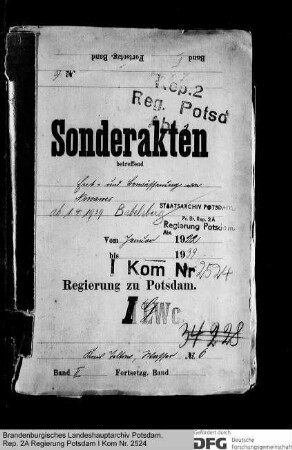 Fortsetzg. Band
Band
Rep. 2
Reg. Potsd
Sonderakten
betreffend
Ent- und Bewässerung von
Nowawes
ab 1.4.1939 Babelsberg
STAATSARCHIV POTSDAM
Pr. Br. Rep. 2A
Regierung Potsdam
Abt.
Vom Januar 19
bis 1939
I Kom Nr 2524
Regierung zu Potsdam.
I Wc
34228
№ 6
Band II Fortsetzg. Band
Brandenburgisches Landeshauptarchiv Potsdam,
Rep. 2A Regierung Potsdam I Kom Nr. 2524
Gefördert durch
DFG Deutsche
Forschungsgemeinschaft